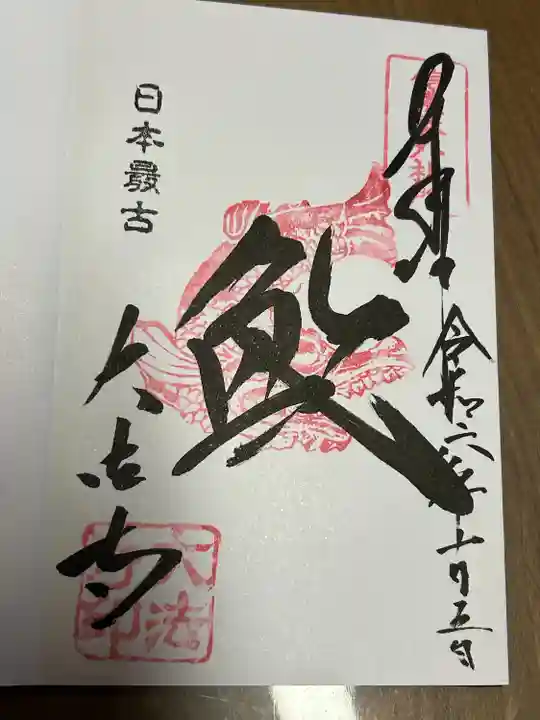 奉拝
令和六年十月五日
鯱
日本最古
大法寺
大法
寺印